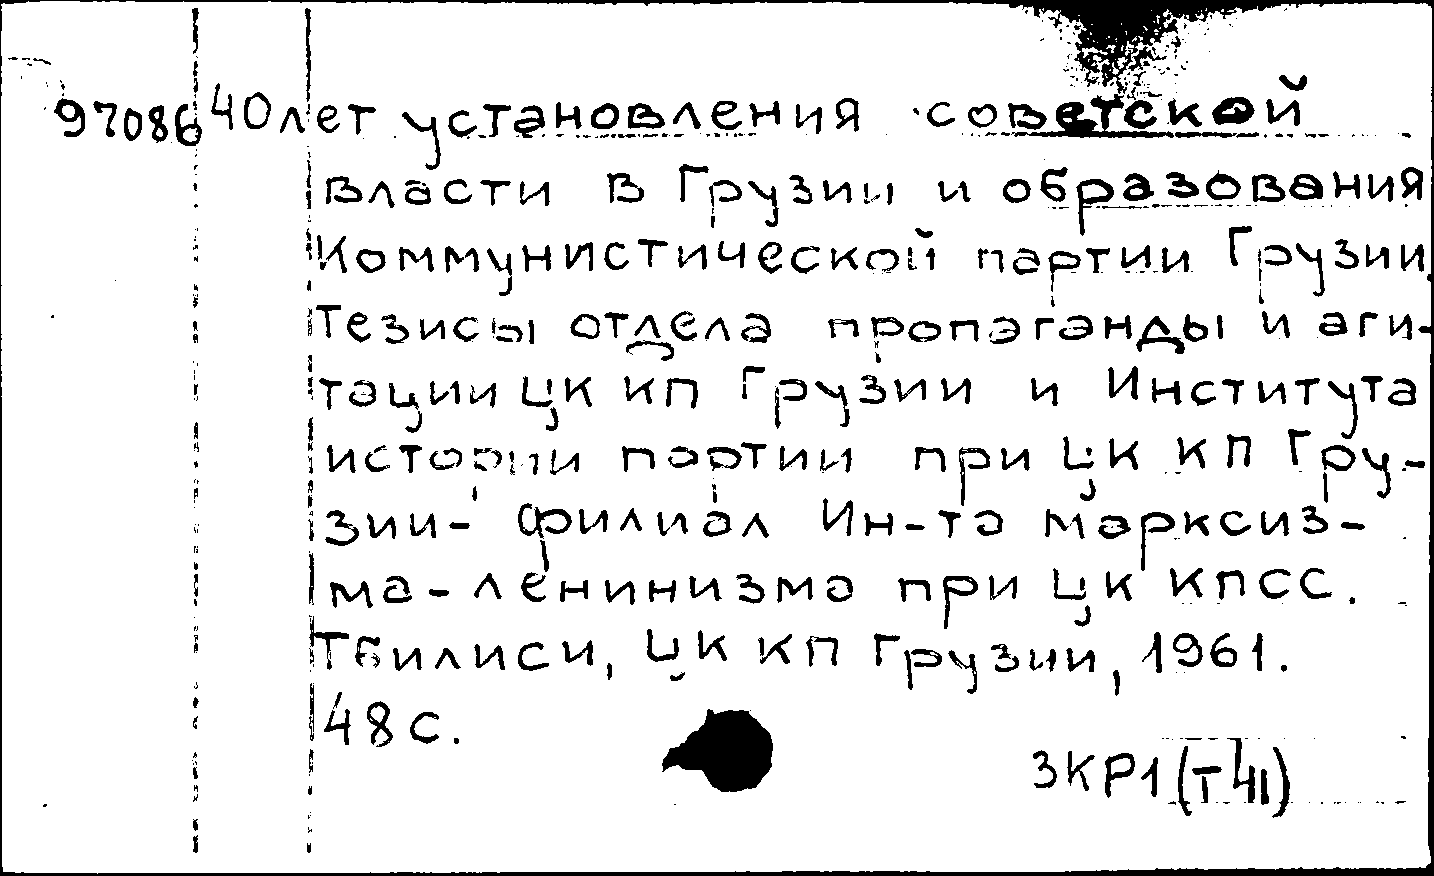 97086 40 лет установления советской
власти в Грузии и образования
Коммунистической партии Грузии.
Тезисы отдела пропаганды и аги-
тации ЦК КП Грузии и Института
истории партии при ЦК КП Гру-
зии - филиал Ин-та марксиз-
ма-ленинизма при ЦК КПСС.
Тбилиси, ЦК КП Грузии, 1961.
48 с.
3КР1(Т41)